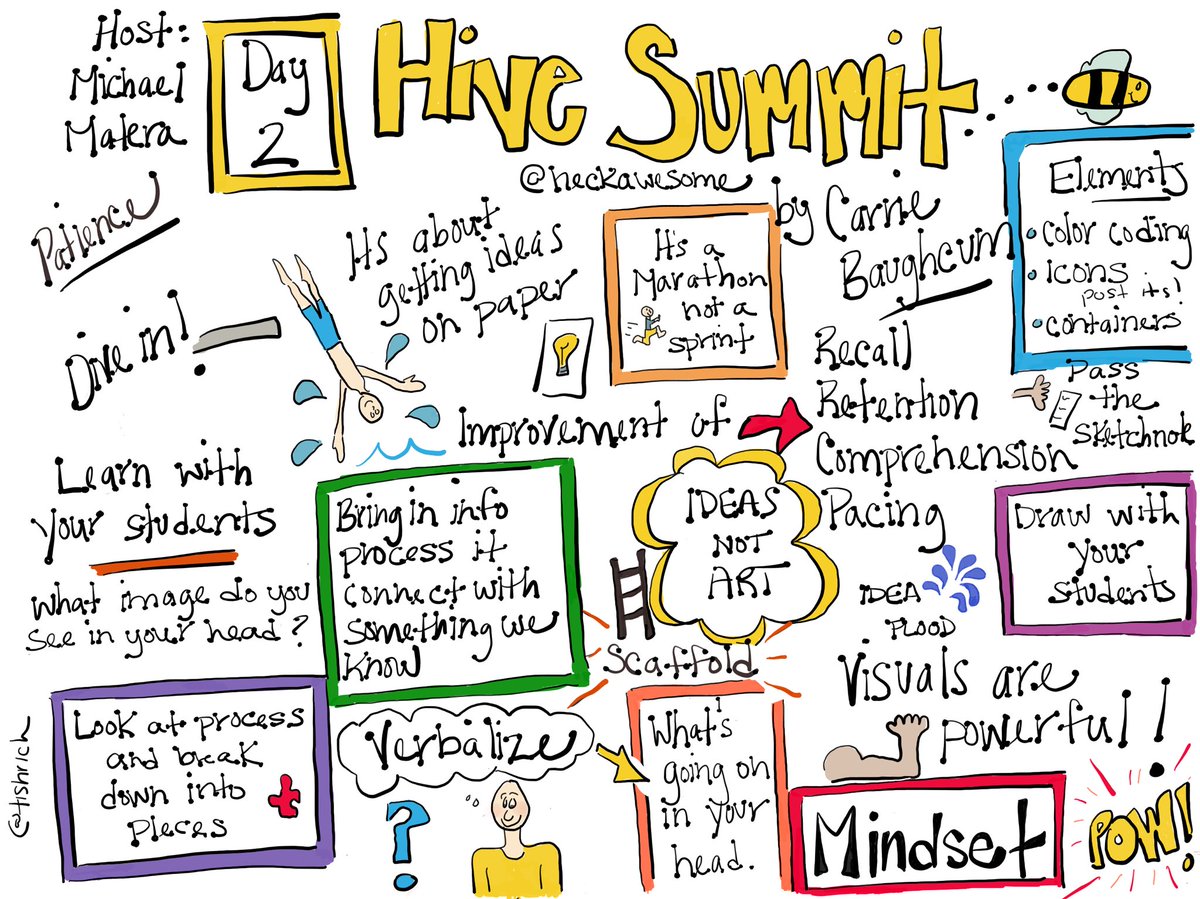 Host:
Michael
Matera
Day
2
Hive Summit
@heckawesome
by Carrie
Baughcum
Patience
Dive in!
Its about
getting ideas
on paper
It's a
Marathon
not a
sprint
Elements
color coding
icons
post its!
containers
Pass
the
sketchnote
Improvement of
Recall
Retention
Comprehension
Pacing
Learn with
your students
What image do you
see in your head?
Bring in info
process it
connect with
something we
know
IDEAS
NOT
ART
Scaffold
IDEA
FLOOD
Draw with
your
students
Visuals are
powerful!
Look at process
and break
down into
pieces
Verbalize
?
What's
going on
in your
head.
Mindset
POW!
@tishrich